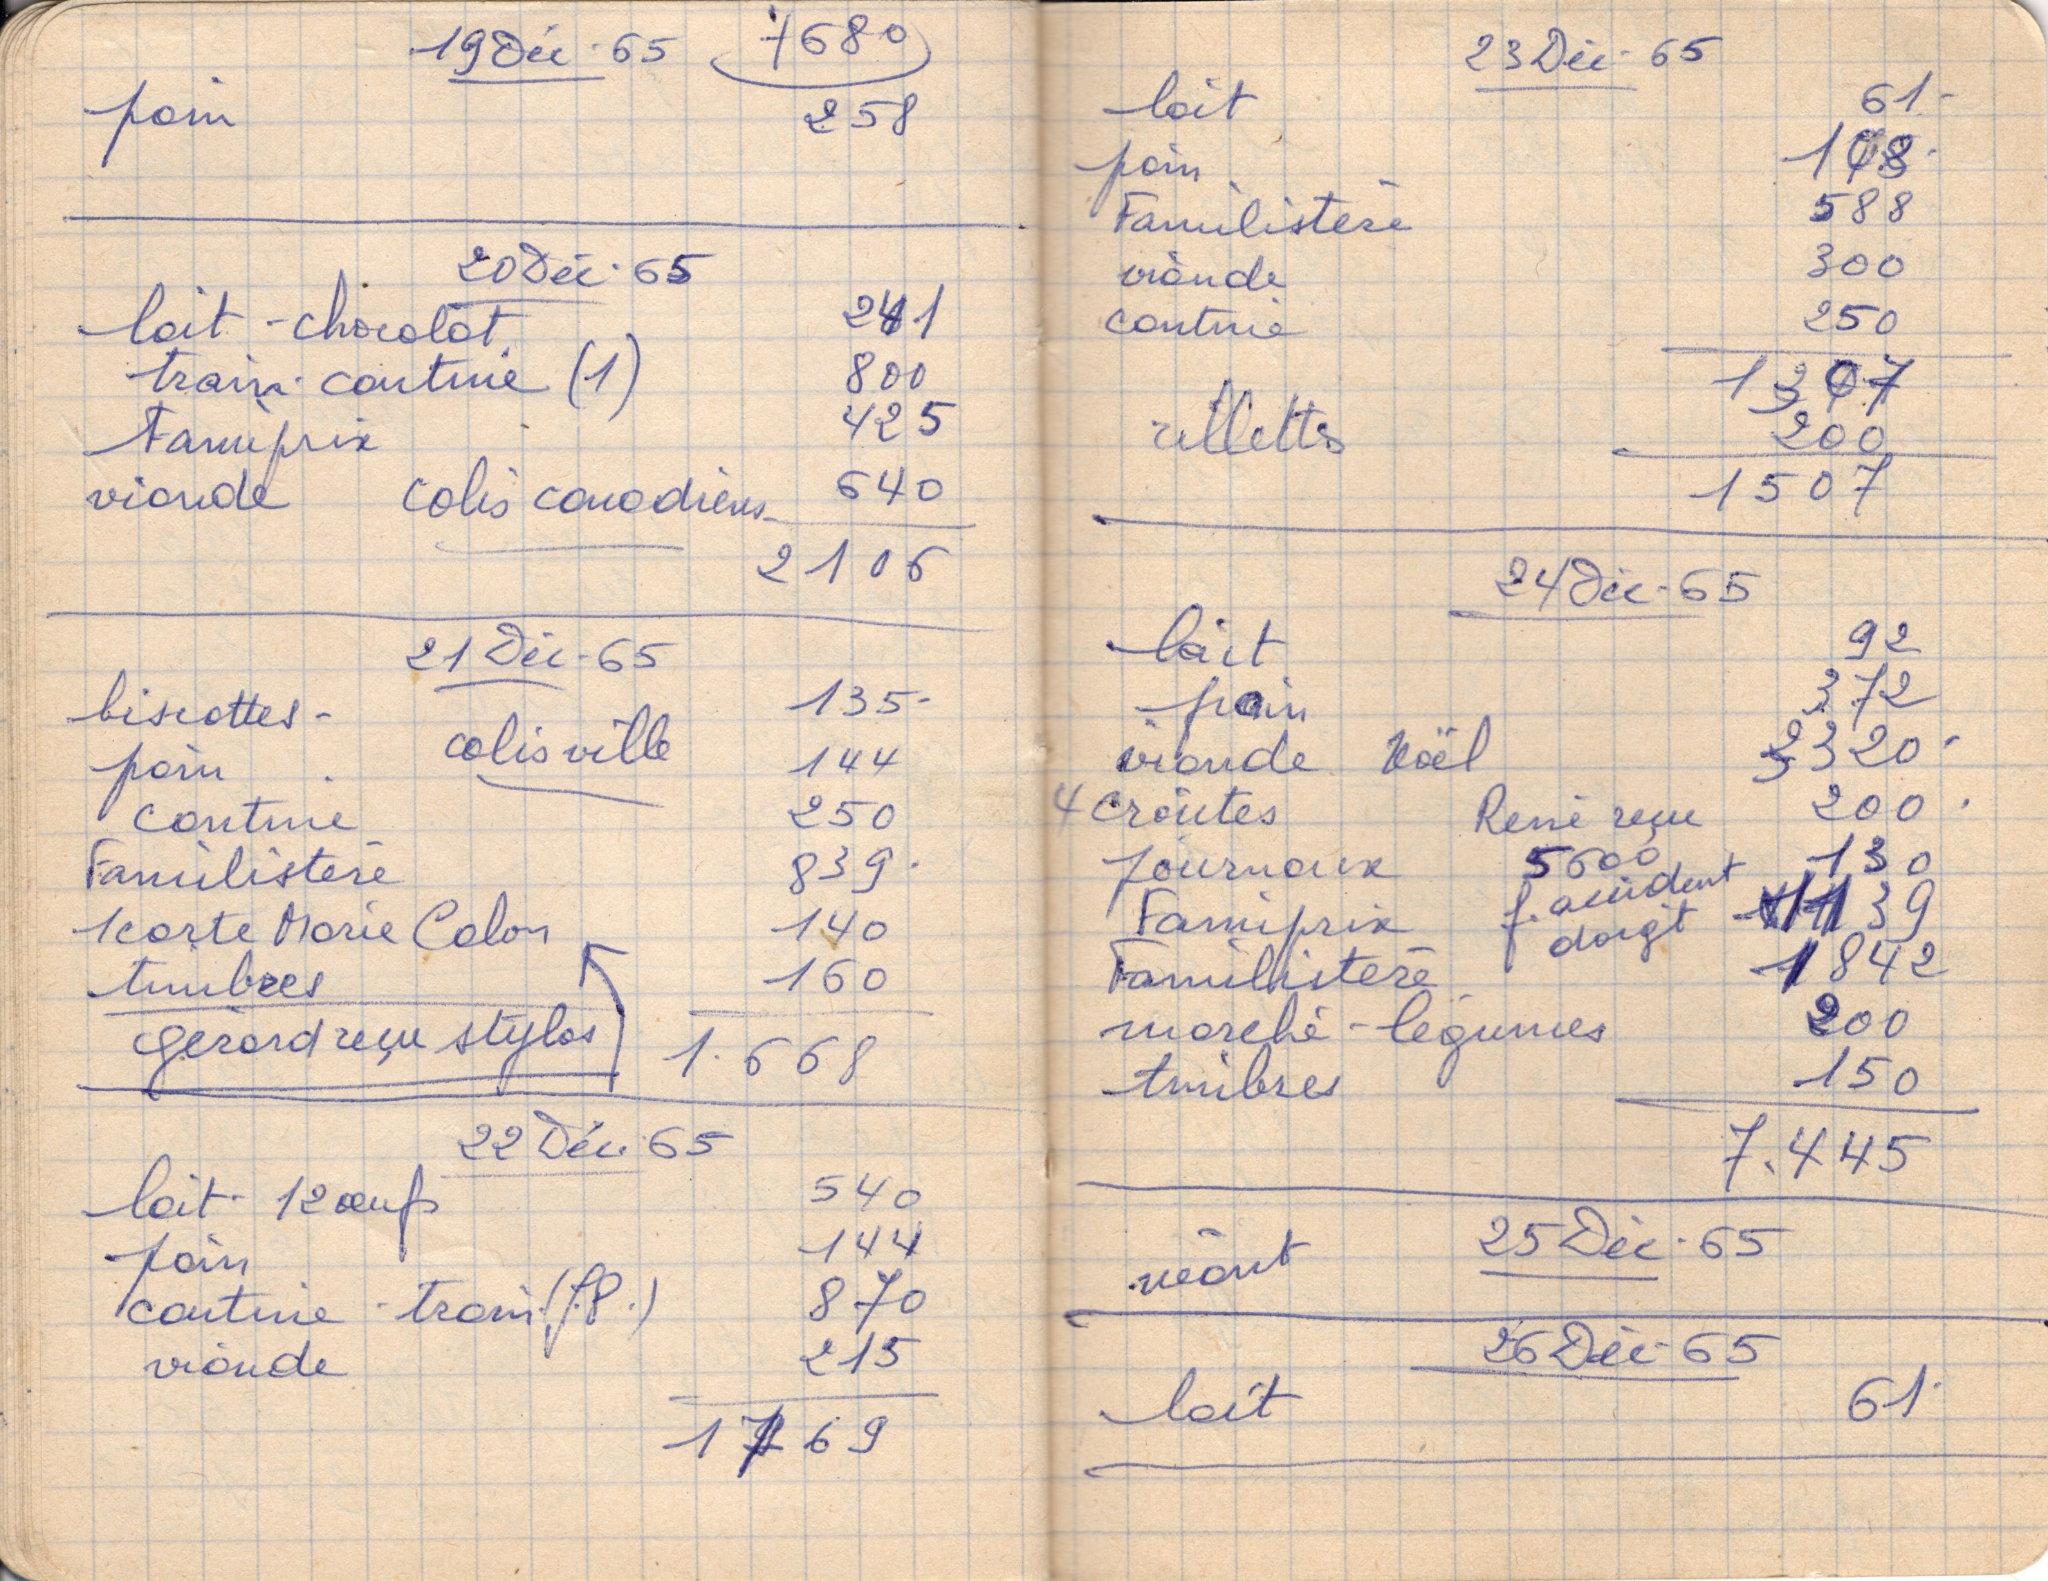 19 Déc. 65 7680
pain 258
20 Déc. 65
lait - chocolat 241
train. cantine (1) 800
Famiprix 425
viande colis canadiens 640
2106
21 Déc. 65
biscottes - 135-
pain colis ville 144
cantine 250
Familistère 839.
1 carte Marie Colon 140
timbres 160
gérard reçu stylos 1.668
22 Déc. 65
lait - 12 œufs 540
pain 144
cantine - train (f.P.) 870
viande 215
1769
23 Déc. 65
lait 61-
pain 108.
Familistère 588
viande 300
cantine 250
1307
rillettes 200
1507
24 Déc. 65
lait 92
pain 372
viande Noël 3320.
4 croûtes René reçu 200.
journaux 5600 130
Famiprix f. accident doigt 1139
Familistère 1842
marché - légumes 200
timbres 150
7.445
25 Déc. 65
néant
26 Déc. 65
lait 61.